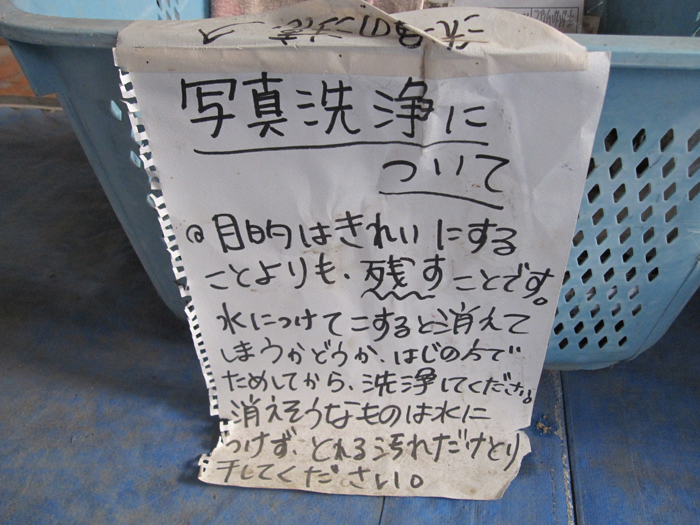 写真洗浄に
ついて
◎目的はきれいにする
ことよりも、残すことです。
水につけてこすると消えて
しまうかどうか、はじの方で
ためしてから、洗浄してください。
消えそうなものは水に
つけず、とれる汚れだけとり
干してください。